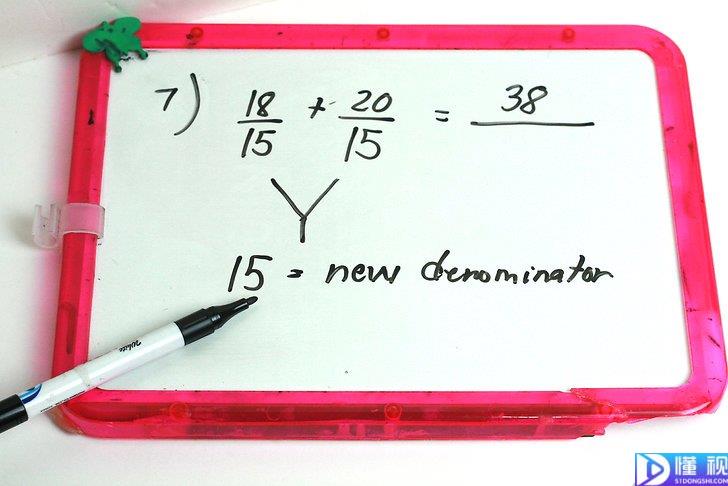 7) 18/15 + 20/15 = 38
15 = new denominator
White
懂视
51DONGSHI.COM